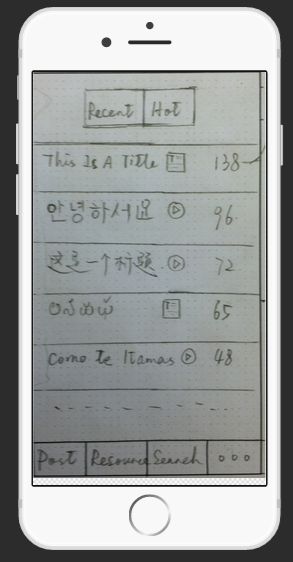 Recent Hot
This Is A Title 138
96
这是一个标题 72
65
Como Te llamas 48
Post Resource Search